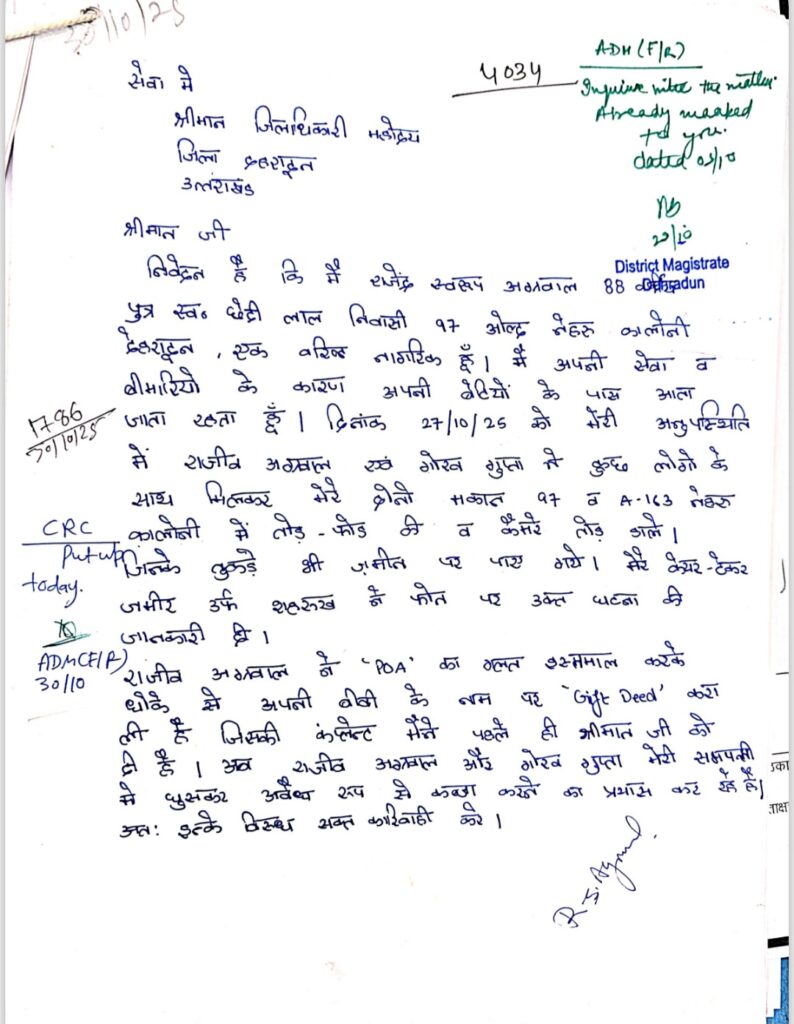 30/10/25
4034
ADM (F/R)
Inquire into the matter.
Already marked
to you.
dated 03/10
28/10
District Magistrate
Dehradun
सेवा मे
श्रीमान जिलाधिकारी महोदय
जिला देहरादून
उत्तराखंड
श्रीमान जी
निवेदन है कि मैं राजेंद्र स्वरूप अग्रवाल 88
पुत्र स्व० छेदी लाल निवासी 97 ओल्ड नेहरु कालोनी
देहरादून , एक वरिष्ठ नागरिक हूँ। मैं अपनी सेवा व
बीमारियो के कारण अपनी बेटियों के पास आता
जाता रहता हूँ। दिनांक 27/10/25 को मेरी अनुपस्थिति
में राजीव अग्रवाल एवं गोरव गुप्ता ने कुछ लोगो के
साथ मिलकर मेरे दोनो मकान 97 व A-163 नेहरु
कालोनी में तोड़-फोड की व कैमरे तोड़ डाले।
जिनके टुकड़े भी ज़मीन पर पाए गये। मेरे केयर-टेकर
जमीर उर्फ शाहरुख ने फोन पर उक्त घटना की
जानकारी दी।
राजीव अग्रवाल ने 'POA' का गलत इस्तमाल करके
धोके से अपनी बीबी के नाम पर 'Gift Deed' करा
ली है जिसकी कंप्लेन्ट मैंने पहले ही श्रीमान जी को
दी है। अब राजीव अग्रवाल और गोरव गुप्ता मेरी सम्पत्ती
मे घुसकर अवैध रूप से कब्ज़ा करने का प्रयास कर रहे है।
अतः इनके विरुध सक्त कारिवाही करे।
1786
30/10/25
CRC
Put up
today.
ADM(F/R)
30/10